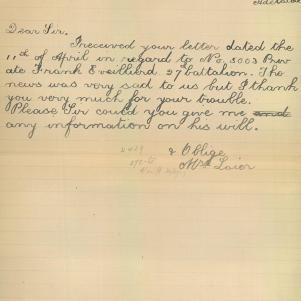 Adelaide
Dear Sir.
I received your letter dated the
11th of April in regard to No. 3003 Priv
ate Frank Eveilliard 27 battalion. The
news was very sad to us but I thank
you very much for your trouble.
Please Sir could you give me
any information on his will.
& Oblige
Mrs